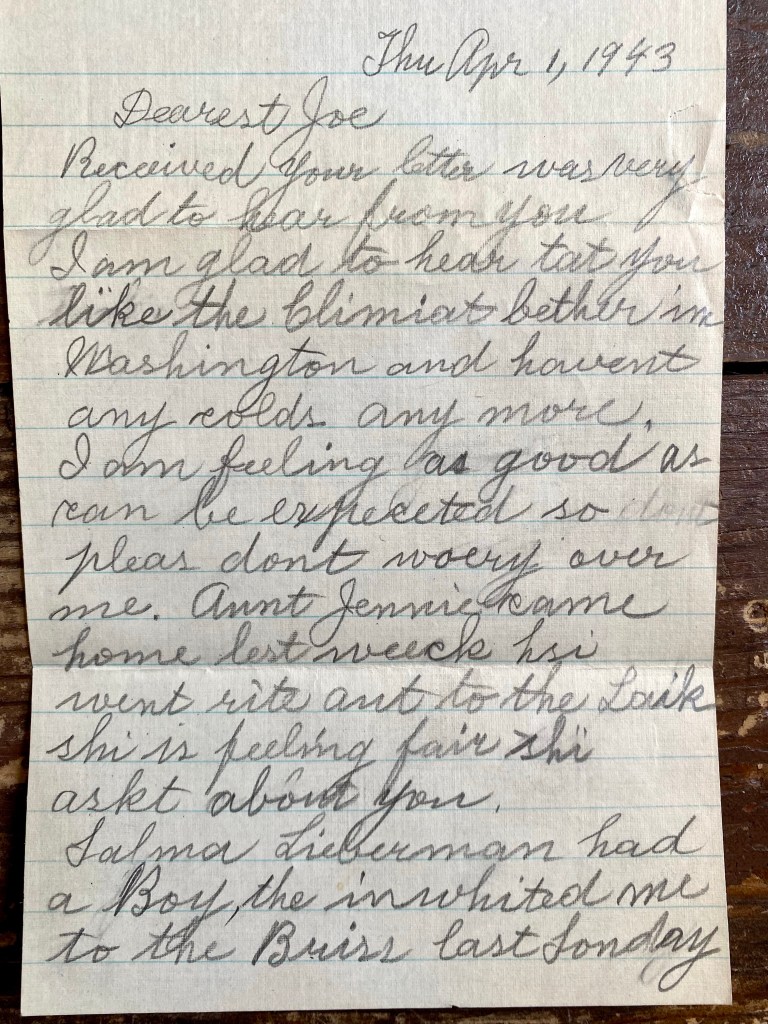 Thu Apr 1, 1943
Dearest Joe
Received your letter was very
glad to hear from you
I am glad to hear tat you
like the Climiat bether in
Washington and havent
any colds any more.
I am feeling as good as
can be expeceted so dont
pleas dont worry over
me. Aunt Jennie came
home lest weeck hsi
went rite aut to the Laik
shi is feeling fair shi
askt about you.
Salma Lieberman had
a Boy, the inwhited me
to the Briss last Sonday